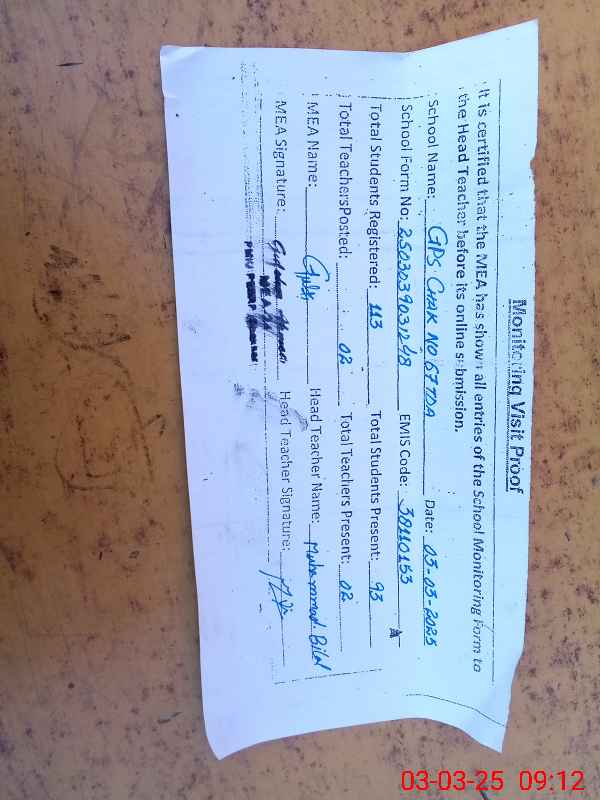 Monitoring Visit Proof
It is certified that the MEA has shown all entries of the School Monitoring Form to
the Head Teacher before its online submission.
School Name: GPS Chak No 67 TDA Date: 03-03-2025
School Form No: EMIS Code: 38110153
Total Students Registered: 113 Total Students Present: 93
Total TeachersPosted: 02 Total Teachers Present: 02
MEA Name: Head Teacher Name: Muhammad Bilal
MEA Signature: Head Teacher Signature:
MEA
03-03-25 09:12